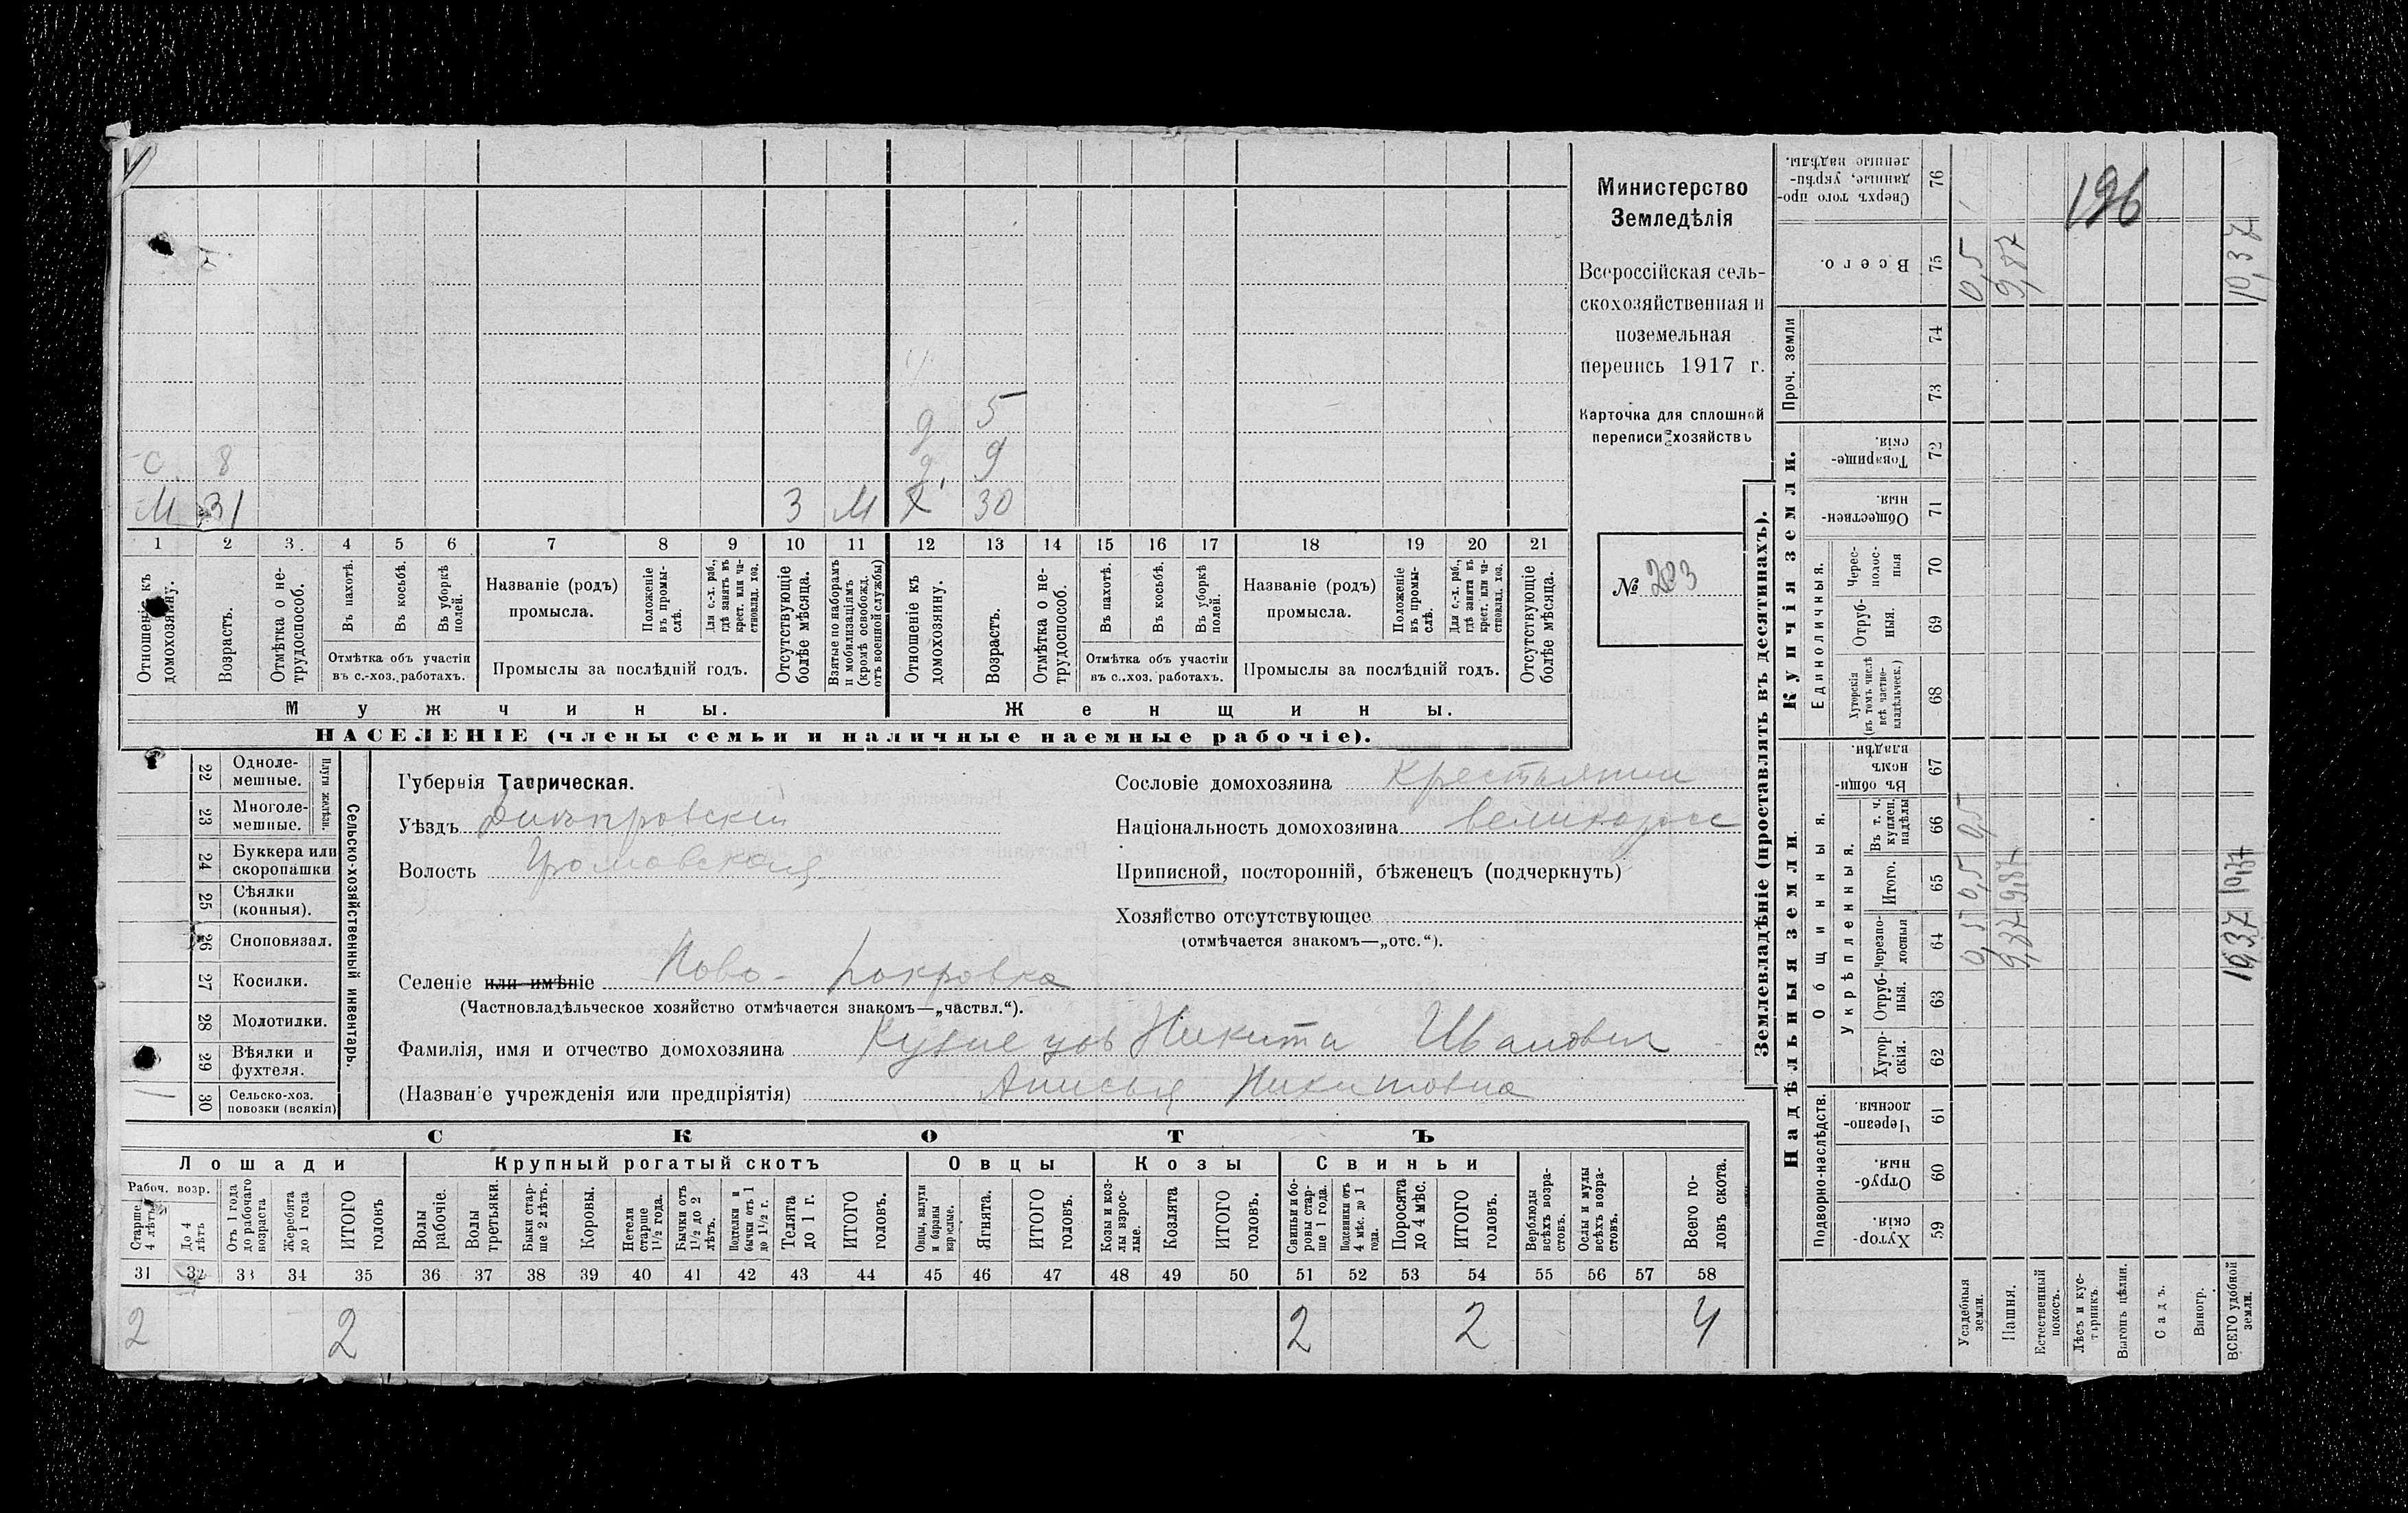 196
Министерство
Земледѣлія
Всероссійская сель-
скохозяйственная и
поземельная
перепись 1917 г.
Карточка для сплошной
переписи хозяйствъ
№ 203
д 5
с 8 д 9
М 31 3 М Х 30
1 2 3 4 5 6 7 8 9 10 11 12 13 14 15 16 17 18 19 20 21
Отношеніе къ домохозяину.
Возрастъ.
Отмѣтка о не-трудоспособ.
Въ пахотѣ.
Въ косьбѣ.
Въ уборкѣ полей.
Отмѣтка объ участіи
въ с.-хоз. работахъ.
Названіе (родъ)
промысла.
Положеніе въ промы-слѣ.
Для с.-х. раб., гдѣ занятъ въ крест. или ча-стновлад. хоз.
Промыслы за послѣдній годъ.
Отсутствующіе болѣе мѣсяца.
Взятые по наборамъ и мобилизаціямъ (кромѣ освобожд. отъ военной службы)
Отношеніе къ домохозяину.
Возрастъ.
Отмѣтка о не-трудоспособ.
Въ пахотѣ.
Въ косьбѣ.
Въ уборкѣ полей.
Отмѣтка объ участіи
въ с..хоз. работахъ.
Названіе (родъ)
промысла.
Положеніе въ промы-слѣ.
Для с.-х. раб., гдѣ занята въ крест. или ча-стновлад. хоз.
Промыслы за послѣдній годъ.
Отсутствующіе болѣе мѣсяца.
Мужчины. Женщины.
НАСЕЛЕНІЕ (члены семьи и наличные наемные рабочіе).
Сельско-хозяйственный инвентарь.
Плуги желѣзн.
22 Одноле-мешные.
23 Многоле-мешные.
24 Буккера или скоропашки
25 Сѣялки (конныя).
26 Сноповязал.
27 Косилки.
28 Молотилки.
29 Вѣялки и фухтеля.
1 30 Сельско-хоз. повозки (всякія)
Губернія Таврическая.
Уѣздъ Днѣпровскій
Волость Громовская
Сословіе домохозяина крестьянин
Національность домохозяина великоросс
Приписной, посторонній, бѣженецъ (подчеркнуть)
Хозяйство отсутствующее
(отмѣчается знакомъ—„отс.“).
Селеніе или имѣніе Ново-Покровка
(Частновладѣльческое хозяйство отмѣчается знакомъ—„частвл.“).
Фамилія, имя и отчество домохозяина Кузнецов Никита Иванович
(Названіе учрежденія или предпріятія) Анисья Никитовна
СКОТЪ
Лошади Крупный рогатый скотъ Овцы Козы Свиньи
Рабоч. возр.
Старше 4 лѣтъ
До 4 лѣтъ
Отъ 1 года до рабочаго возраста
Жеребята до 1 года
ИТОГО головъ
Волы рабочіе.
Волы третьяки.
Быки стар-ше 2 лѣтъ.
Коровы.
Нетели старше 1½ года.
Бычки отъ 1½ до 2 лѣтъ.
Подтелки и бычки отъ 1 до 1½ г.
Телята до 1 г.
ИТОГО головъ.
Овцы, валухи и бараны взрослые.
Ягнята.
ИТОГО головъ.
Козы и коз-лы взрос-лые.
Козлята
ИТОГО головъ.
Свиньи и бо-ровы стар-ше 1 года.
Подсвинки отъ 4 мѣс. до 1 года.
Поросята до 4 мѣс.
ИТОГО головъ.
Верблюды всѣхъ возра-стовъ.
Ослы и мулы всѣхъ возра-стовъ.
Всего го-ловъ скота.
31 32 33 34 35 36 37 38 39 40 41 42 43 44 45 46 47 48 49 50 51 52 53 54 55 56 57 58
2 2 2 2 4
Землевладѣніе (проставлять въ десятинахъ).
Надѣльныя земли. Купчія земли. Проч. земли
Подворно-наслѣдств.
Общинныя.
Укрѣпленныя.
Единоличныя.
59 Хутор-скія.
60 Отруб-ныя.
61 Черезпо-лосныя.
62 Хутор-скія.
63 Отруб-ныя.
64 Черезпо-лосныя
65 Итого.
66 Въ т. ч. куплен. надѣлы
67 Въ общи-номъ владѣн.
68 Хуторскія (въ томъ числѣ всѣ частно-владѣльческ.)
69 Отруб-ныя.
70 Черес-полос-ныя
71 Обществен-ныя.
72 Товарище-скія.
73
74
75 Всего.
76 Сверхъ того про-данные, укрѣп-ленные надѣлы.
Усадебныя земли. 0,5 0,5 0,5 0,5
Пашня. 9,87 9,87 9,87
Естественный покосъ.
Лѣсъ и кус-тарникъ.
Выгонъ цѣлин.
Садъ.
Виногр.
ВСЕГО удобной земли. 10,37 10,37 10,37